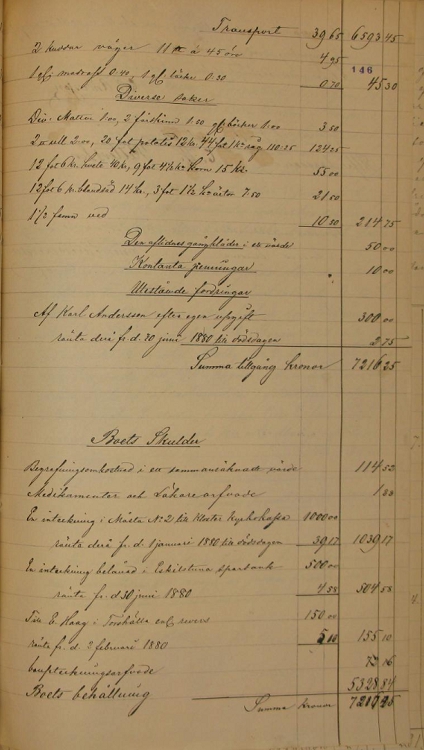 Transport 39 65 6593 45
2 kuddar väger 11 ℔ à 45 öre 4 95
146
1 st madrass 0.40, 1 st 0.30 0.70 45 30
Diverse saker
Div. Mattor 1.00, 2 fårskinn 1.50 böcker 1.00 3 50
2 ull 2.00, 20 fot potatis 12 kr, 44 fot råg 110.25 124 25
12 fot 6 kr. hvete 40 kr, 9 fot korn 15 kr. 55 00
12 fot 6 kr blandsäd 14 kr, 3 fot 1½ kr ärtor 7.50 21 50
1½ famn ved 10 50 214 75
Den aflidnes gångkläder i ett värde 50 00
Kontanta penningar " 10 00
Utestående fordringar
Af Karl Andersson efter egen uppgift 300 00
ränta derå fr. d. 30 juni 1880 till dödsdagen 2 75
Summa tillgång kronor 7216 25
Boets Skulder
Begrafningsomkostnad i ett sammanräknadt värde 114 52
Medikamenter och Läkare arfvode 1 88
En inteckning i Måsta No 2 till Kloster Kyrkokassa 1000 00
ränta derå fr. d. 1 januari 1880 till dödsdagen 39 17 1039 17
En inteckning belånad i Eskilstuna Sparbank 500 00
ränta fr. d 30 juni 1880 4 58 504 58
Till E. Haag i Torshälla enl. revers 150 00
ränta fr. d. 2 februari 1880 5 10 155 10
bouppteckningsarfvode 72 16
5328 84
Boets behållning Summa kronor 7216 25